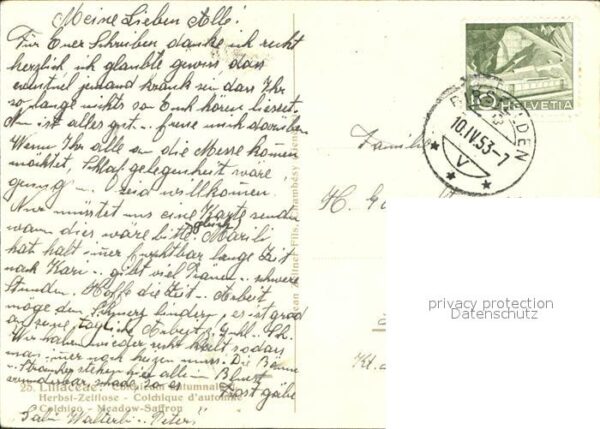 Meine Lieben Alle!
Für Euer Schreiben danke ich recht
herzlich ich glaubte gewiss, dass
eventuel jemand krank sei dass Ihr
so lange nichts von Euch hören liesset.
Nun ist alles gut freue mich darüber
Wenn Ihr alle an die Messe kommen
möchtet, Schlafgelegenheit wäre
genug. Seid willkommen.
Nur müsstet uns eine Karte senden
wann dies wäre bitte. Marili
hat halt immer furchtbar lange Zeit
nach Kari .. gibt viel Tränen .. schwere
Stunden. Hoffe die Zeit .. Arbeit
möge den Schmerz lindern, es ist grad
tägliche Arbeit
Wir haben wieder recht kalt sodass
man immer noch heizen muss. Die Bäume
Sträucher stehen alle im Bluest
wunderbar, so es Frost gäbe
25. Liliaceae: Colchicum autumnale
Herbst-Zeitlose - Colchique d'automne
Colchico - Meadow-Saffron
Walterli Peters
Familie
H. G
Kt.
HELVETIA
10.IV.53-7
V
privacy protection
Datenschutz